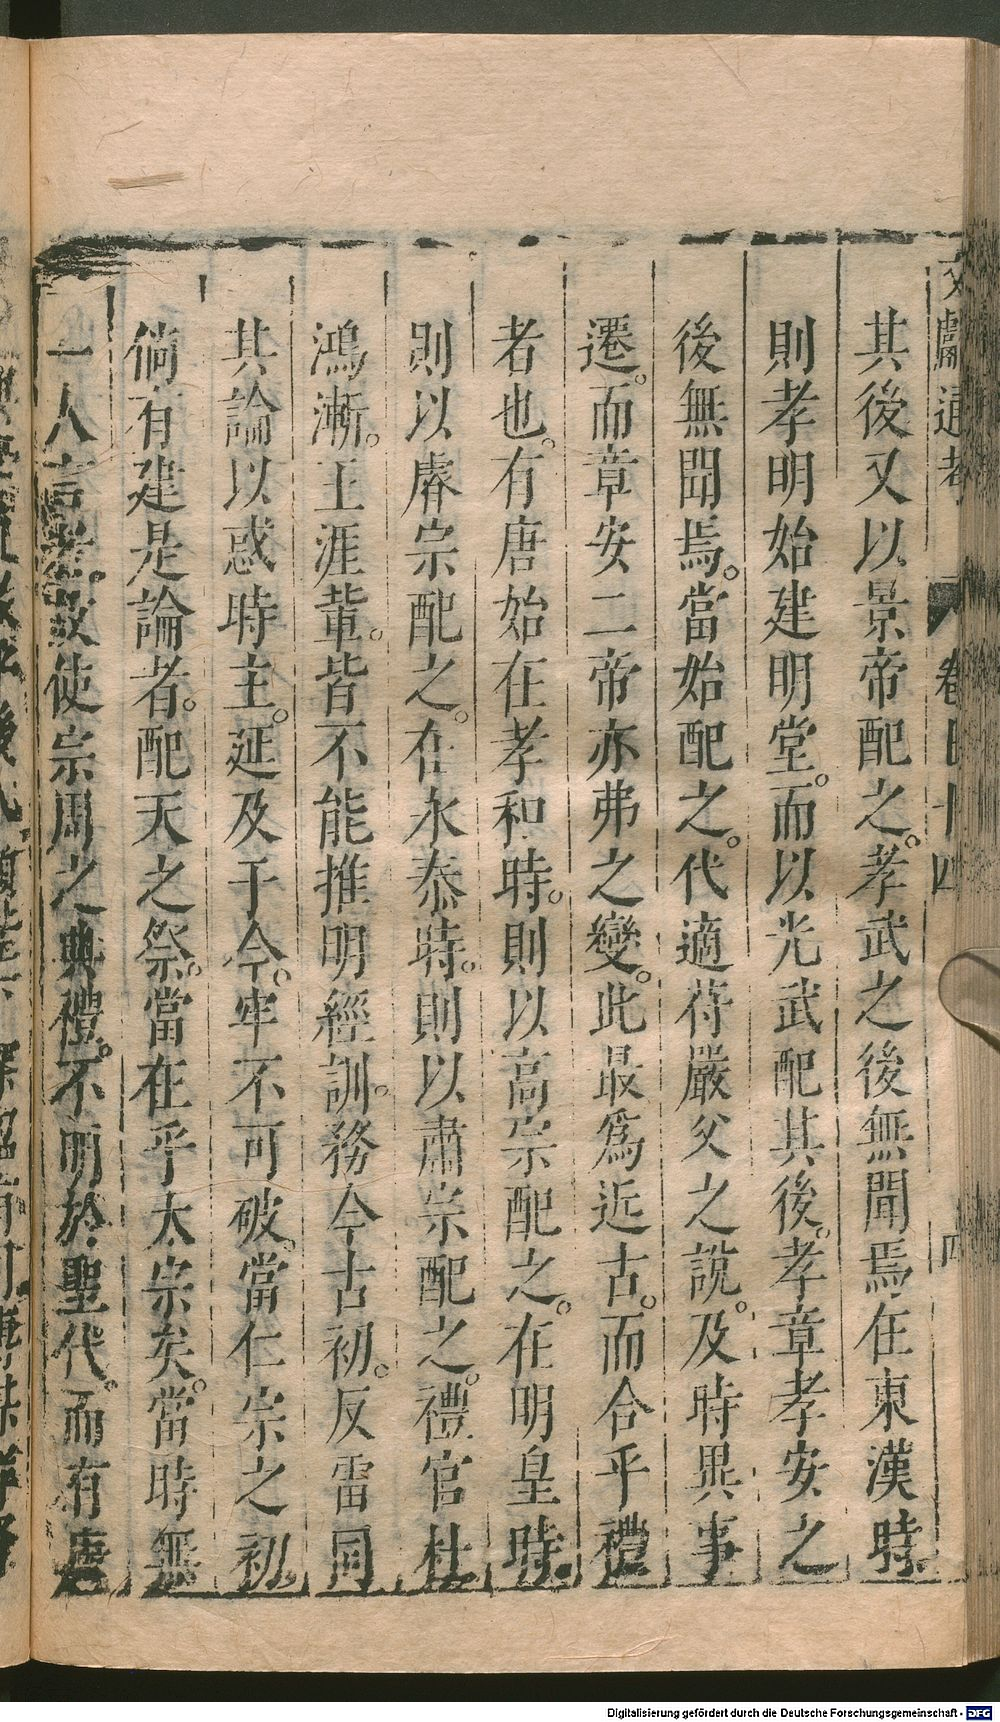 文獻通考 卷七十四 四
其後又以景帝配之。孝武之後無聞焉在東漢時
則孝明始建明堂。而以光武配其後。孝章孝安之
後無聞焉。當始配之。代適符嚴父之說。及時異事
遷。而章安二帝亦弗之變。此最爲近古。而合乎禮
者也。有唐始在孝和時。則以高宗配之。在明皇時
則以睿宗配之。在永泰時。則以肅宗配之。禮官杜
鴻漸。王涯輩。皆不能推明經訓。務合古初。反雷同
其論以惑時主。延及于今。牢不可破。當仁宗之初
倘有建是論者。配天之祭。當在乎太宗矣。當時無
一人言者。故使宗周之典禮。不明於聖代。而有唐
Digitalisierung gefördert durch die Deutsche Forschungsgemeinschaft - DFG